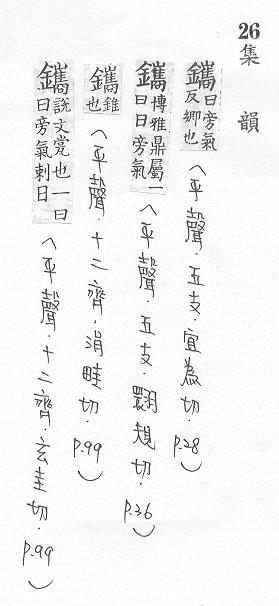 26
集韻
鑴日旁氣反鄉也（平聲．五支．宜為切．P.28）
鑴博雅鼎屬一曰日旁氣（平聲．五支．翾規切．P.36）
鑴錐也（平聲．十二齊．涓畦切．P.99）
鑴說文瓽也一曰日旁氣刺日（平聲．十二齊．玄圭切．P.99）